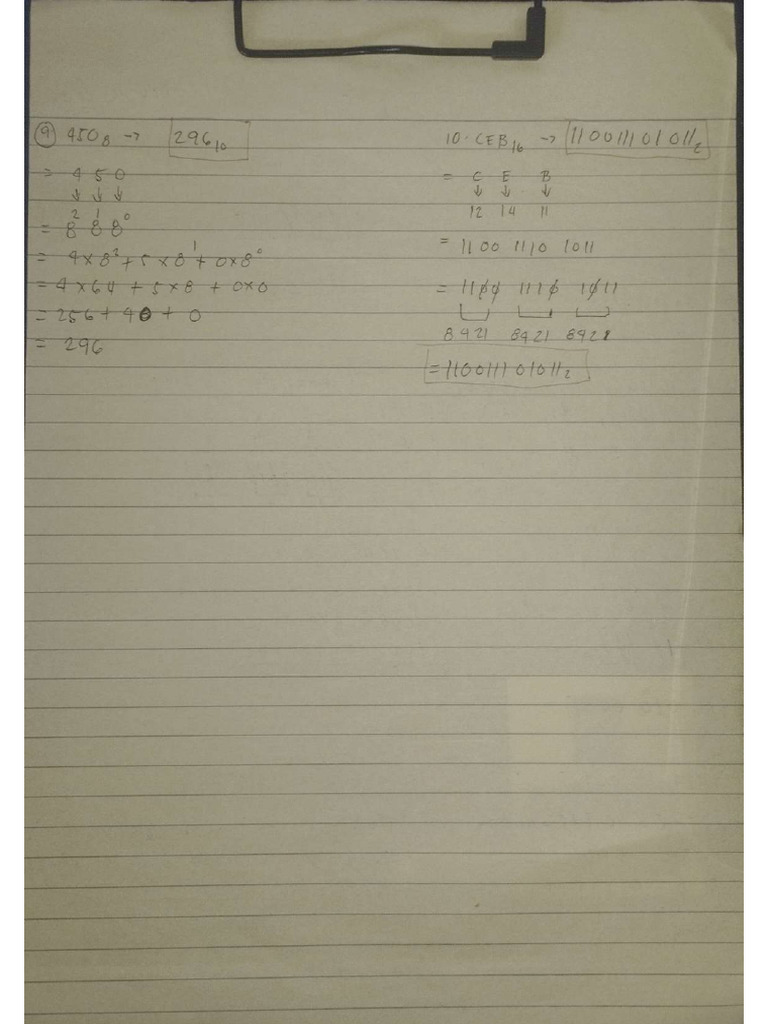 9 450₈ → 296₁₀
= 4 5 0
↓ ↓ ↓
= 8² 8¹ 8⁰
= 4×8² + 5×8¹ + 0×8⁰
= 4×64 + 5×8 + 0×0
= 256 + 40 + 0
= 296
10. CEB₁₆ → 110011101011₂
= C E B
↓ ↓ ↓
12 14 11
= 1100 1110 1011
= 1100 1110 1011
8421 8421 8421
= 110011101011₂